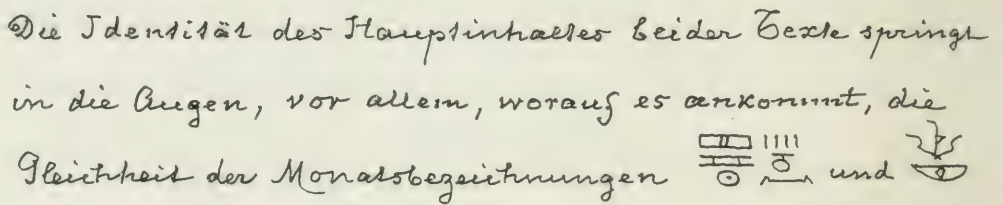 Die Identität des Hauptinhaltes beider Texte springt
in die Augen, vor allem, worauf es ankommt, die
Gleichheit der Monatsbezeichnungen und